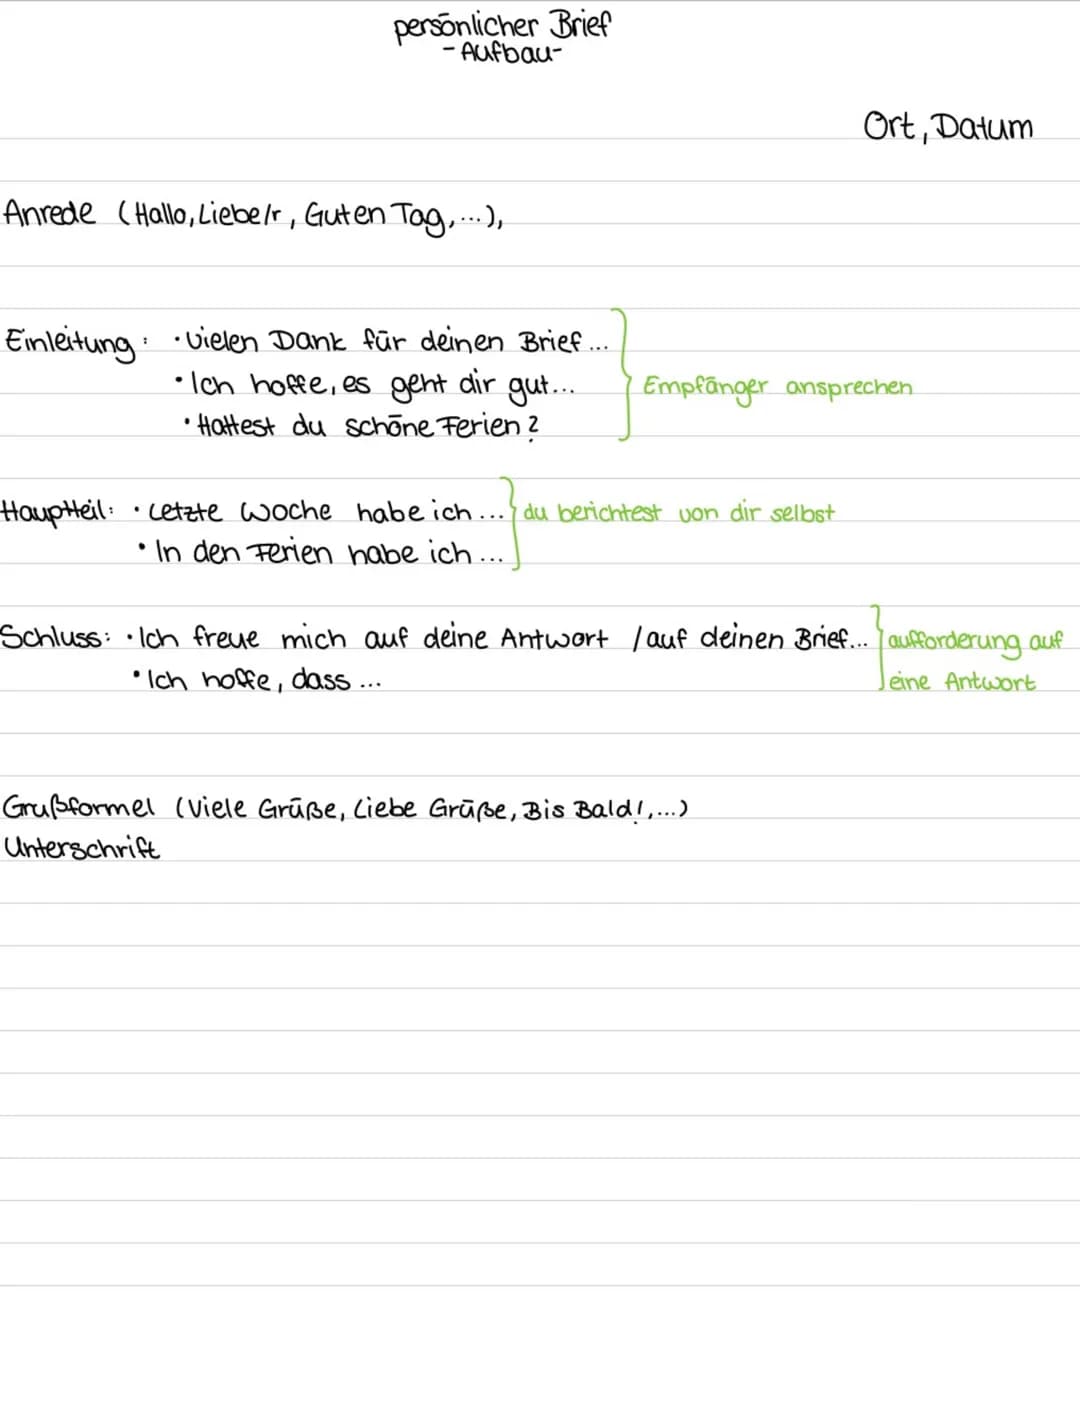 persönlicher Brief
-Aufbau-
Ort, Datum
Anrede (Hallo, Liebe/r, Guten Tag, ...),
Einleitung: · Vielen Dank für deinen Brief...
· Ich hoffe, es geht dir gut...
Empfänger ansprechen
· Hattest du schöne Ferien?
Hauptteil: · Letzte Woche habe ich ... du berichtest von dir selbst
· In den Ferien habe ich ...
Schluss: · Ich freue mich auf deine Antwort / auf deinen Brief... aufforderung auf
· Ich hoffe, dass ... eine Antwort
Grußformel (Viele Grüße, Liebe Grüße, Bis Bald!, ...)
Unterschrift